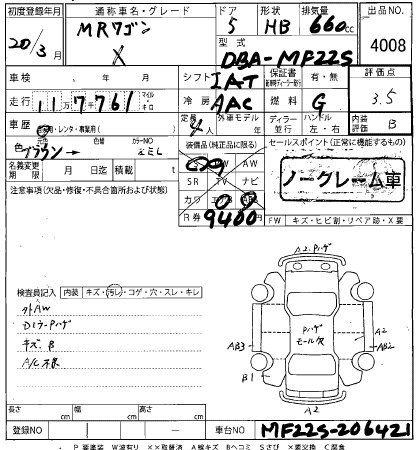 初度登録年月 通称車名・グレード ドア 形状 排気量 出品NO.
20/3月 MRワゴン 5 HB 660cc 4008
X 型式 DBA-MF22S
車検 年 月 日 シフト IAT 保証書 有・無 評価点
走行 11万7761 マイル キロ 冷房 AAC 燃料 G 3.5
車歴 ・レンタ・事業用( ) 定員 4人 外車モデル 年 ディーラー 並行 ハンドル 左・右 内装 B
色 ブラウン→ 色替 カラーNO ZEL 装備品(純正品に限る) セールスポイント(正常に機能するもの)
名義変更期限 月 日迄 積載 t AW ノークレーム車
注意事項(欠品・修復・不具合箇所および状態) SR TV ナビ
カワ
R券 9400 FW キズ・ヒビ割・リペア跡・X要
A2.Pハゲ
検査員記入 内装 キズ・汚レ・コゲ・穴・スレ・キレ
外AW
キズ B
A/C不良
Pハゲ
モール欠
A2
AB3 AB2
B1
A2
長さ cm 幅 cm 高さ cm
登録NO 車台NO MF22S-206421
P 要塗装 W波有り XX取替済 A線キズ Bヘコミ Sさび X要交換 C腐食